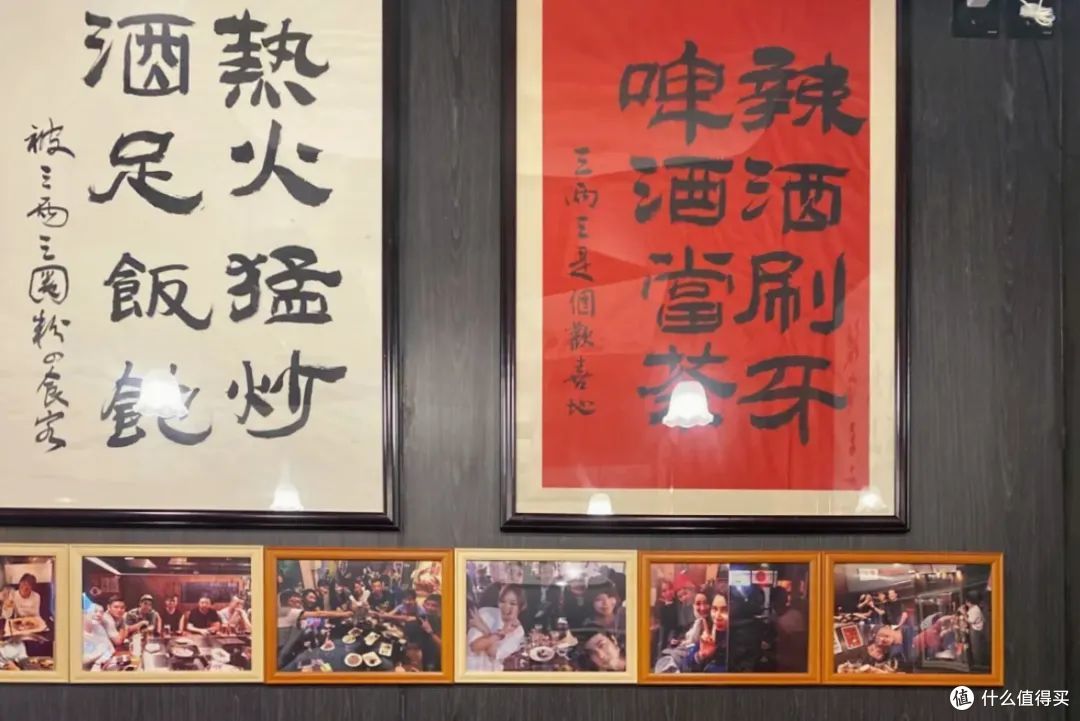 熱火猛炒
酒足飯飽
被三兩三圈粉の食客
辣酒刷牙
啤酒當茶
三兩三是個歡喜地
值 什么值得买